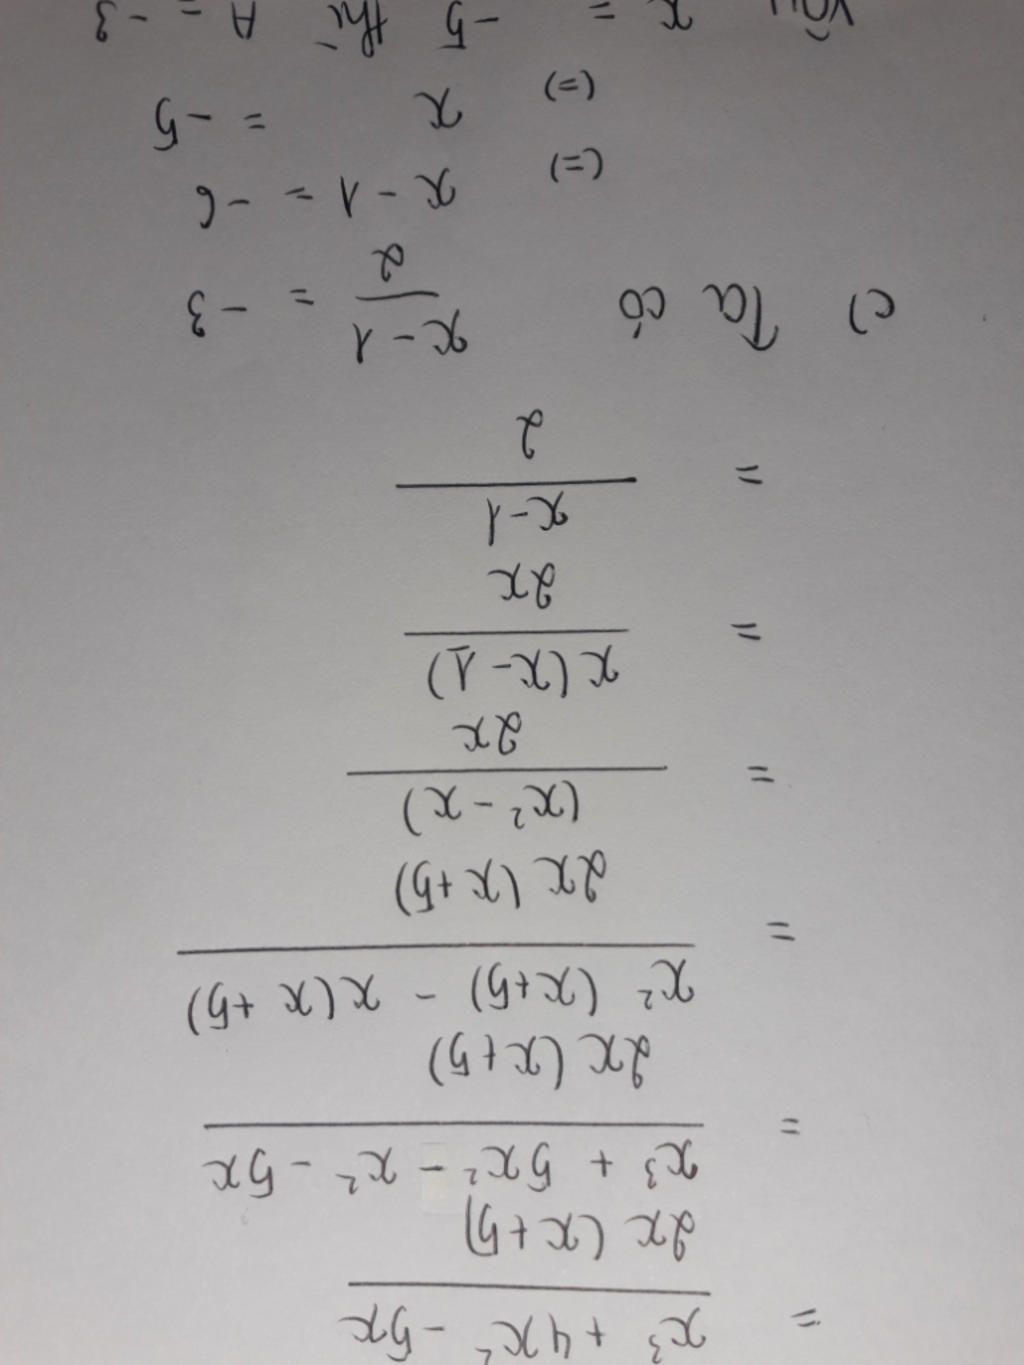 = x³ + 4x² - 5x / 2x (x+5)
= x³ + 5x² - x² - 5x / 2x (x+5)
= x² (x+5) - x(x+5) / 2x (x+5)
= (x² - x) / 2x
= x(x-1) / 2x
= x-1 / 2
c) Ta có x-1 / 2 = -3
(=) x - 1 = -6
(=) x = -5
Vậy x = -5 thì A = -3